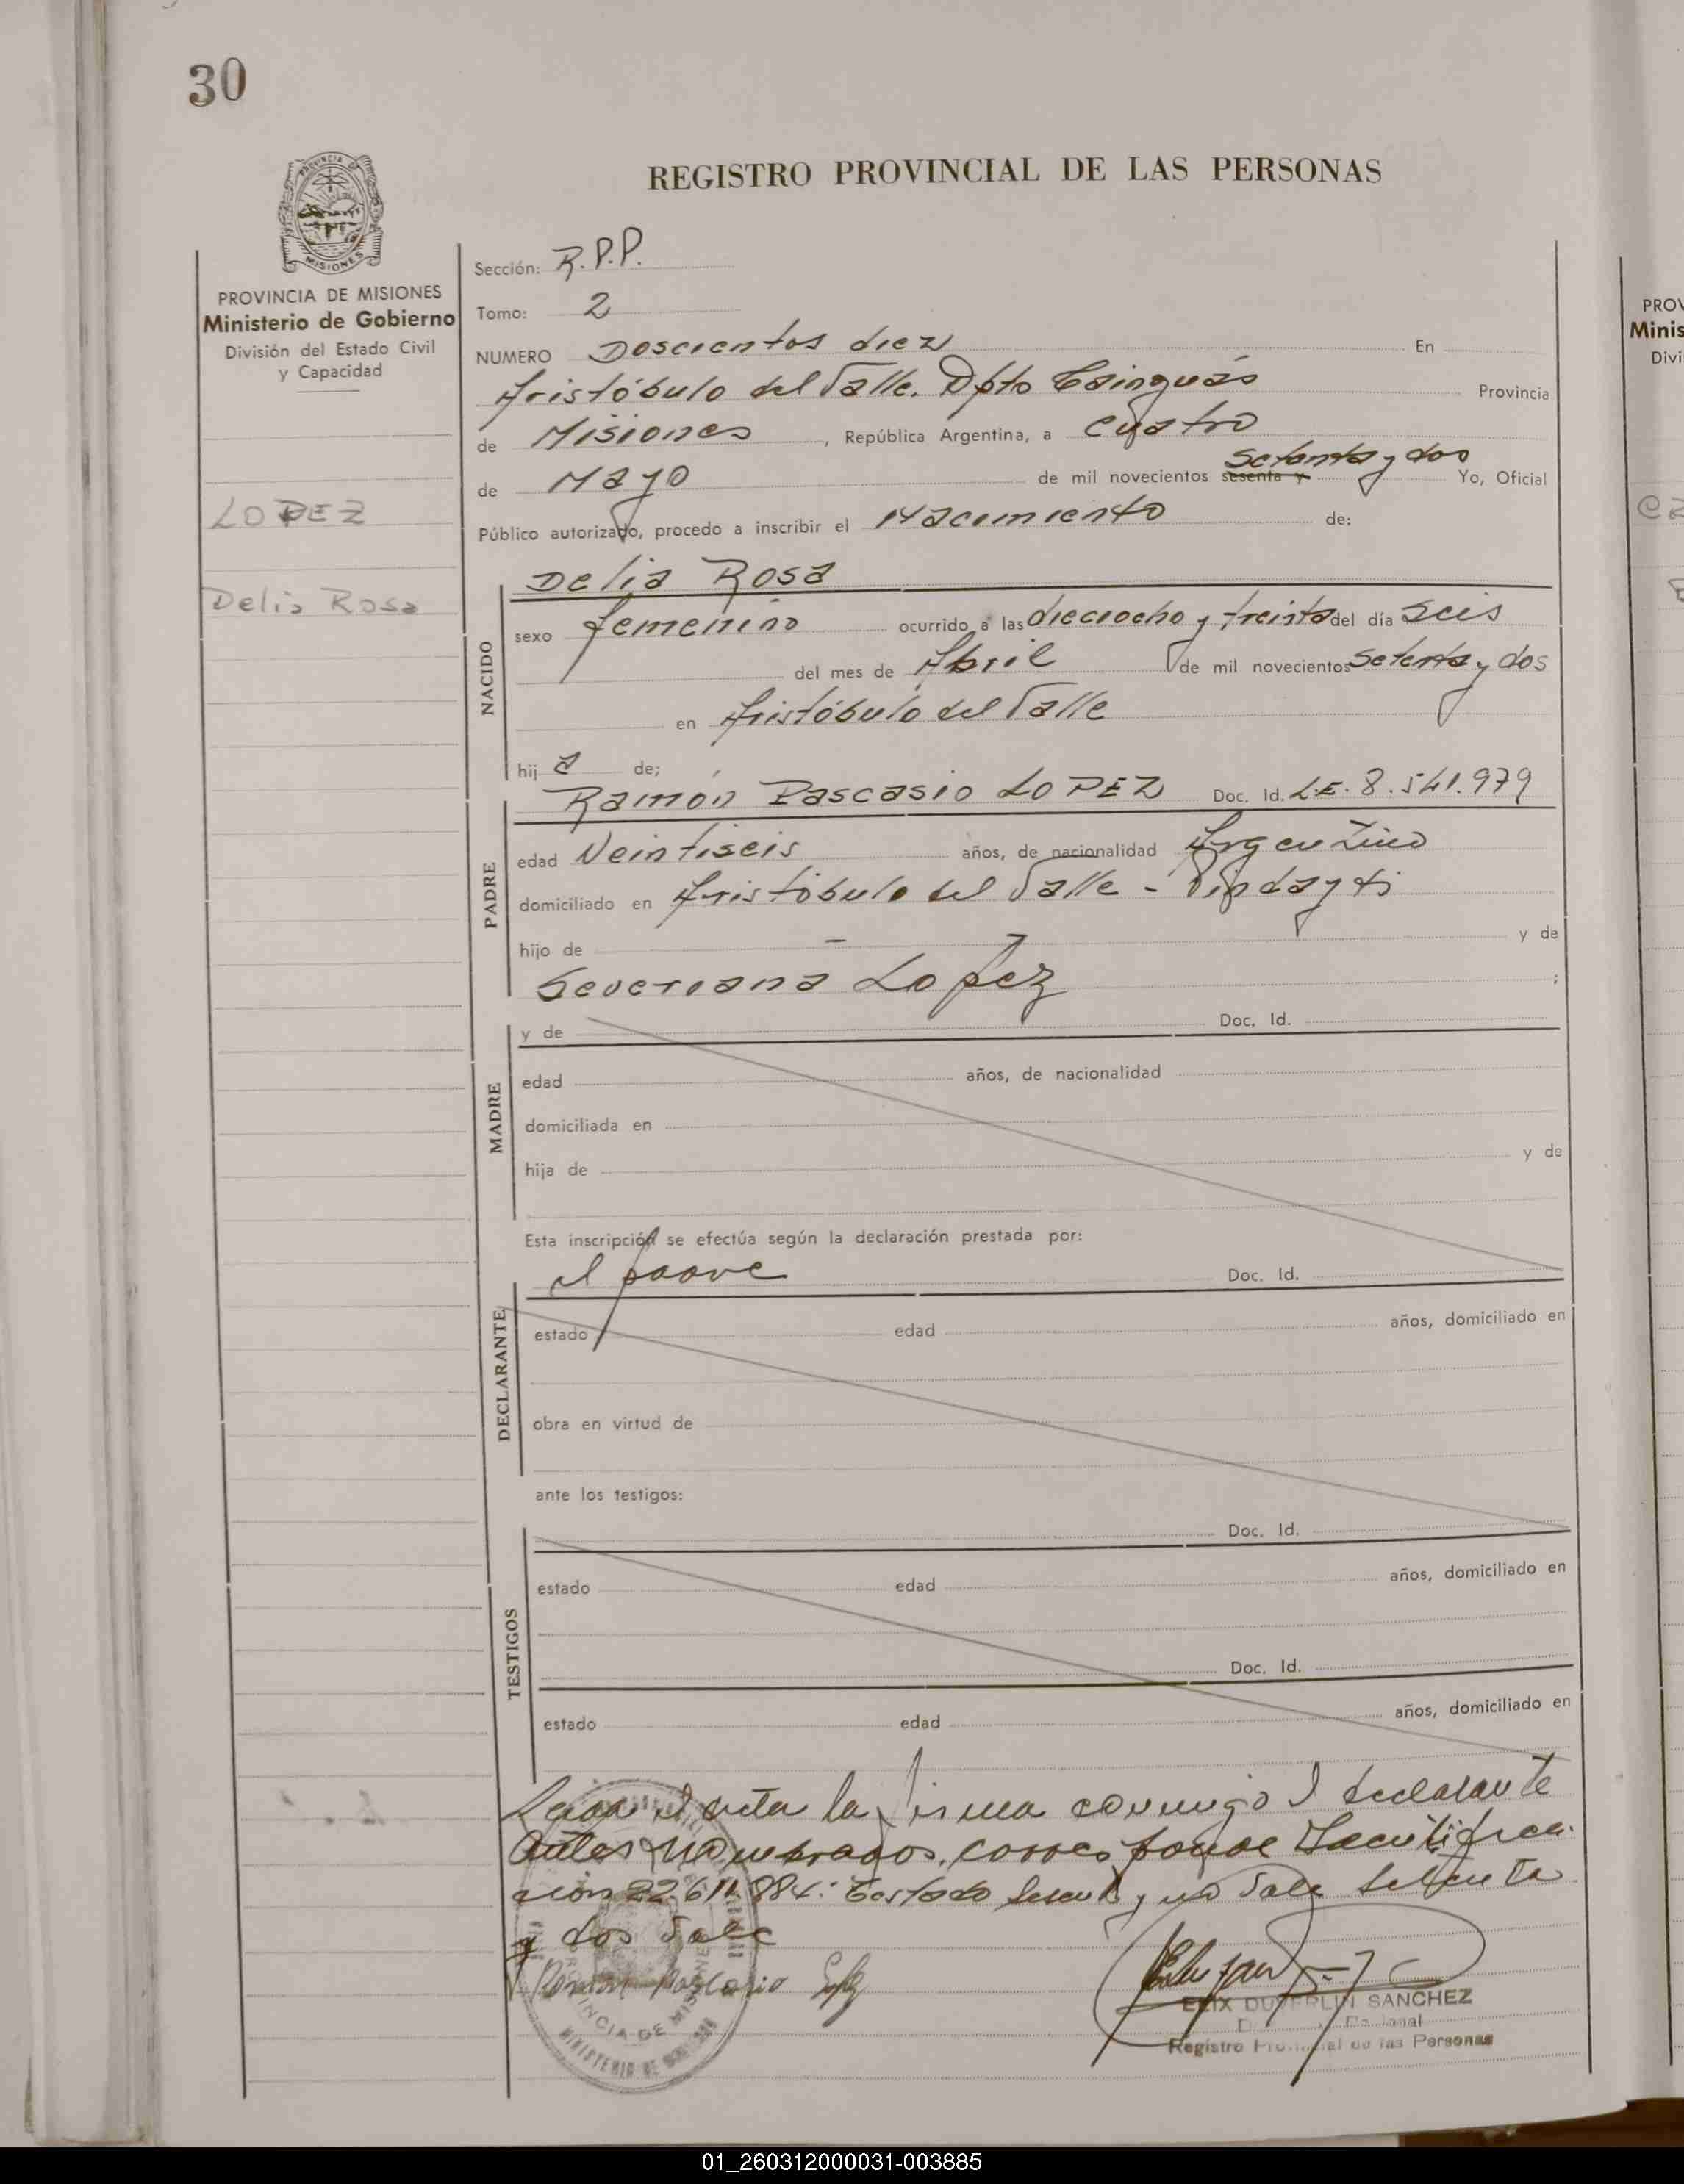 30
REGISTRO PROVINCIAL DE LAS PERSONAS
PROVINCIA DE MISIONES
Ministerio de Gobierno
División del Estado Civil
y Capacidad
LOPEZ
Delia Rosa
Sección: R.P.P.
Tomo: 2
NUMERO Doscientos diez En
Aristóbulo del Valle. Dpto Cainguás Provincia
de Misiones, República Argentina, a cuatro
de Mayo de mil novecientos sesenta y setenta y dos Yo, Oficial
Público autorizado, procedo a inscribir el Nacimiento de:
NACIDO
Delia Rosa
sexo femenino ocurrido a las dieciocho y treinta del día seis
del mes de Abril de mil novecientos setenta y dos
en Aristóbulo del Valle
hij a de;
PADRE
Ramón Pascasio LOPEZ Doc. Id. L.E. 8.541.979
edad Veintiseis años, de nacionalidad Argentino
domiciliado en Aristóbulo del Valle - Pindayti
hijo de — y de
Severiana Lopez ;
MADRE
y de Doc. Id.
edad años, de nacionalidad
domiciliada en
hija de y de
Esta inscripción se efectúa según la declaración prestada por:
DECLARANTE
el padre Doc. Id.
estado edad años, domiciliado en
obra en virtud de
ante los testigos:
TESTIGOS
Doc. Id.
estado edad años, domiciliado en
Doc. Id.
estado edad años, domiciliado en
Leida el acta la firma conmigo el declarante
antes nombrados. corresponde
22.611.884: Testado sesenta y no vale setenta
y dos vale
Ramon Pascasio Lopez
FELIX DUVERLIN SANCHEZ
Registro Provincial de las Personas
PROVINCIA DE MISIONES
MINISTERIO DE GOBIERNO
PROV
Minis
Divi
01_260312000031-003885